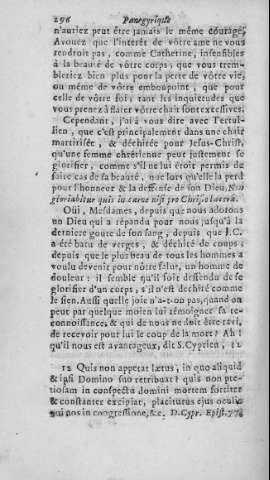 296 Panegyrique
n'auriez peut être jamais le même courage,
Avouez que l'interêt de vôtre ame ne vous
rendroit pas, comme Catherine, insensibles
à la beauté de vôtre corps; que vous trem-
bleriez bien plus pour la perte de vôtre vie,
ou même de vôtre embonpoint, que pour
celle de vôtre foi; tant les inquietudes que
vous prenez à flater vôtre chair sont excessives.
Cependant, j'ai à vous dire avec Tertul-
lien, que c'est principalement dans une chair
martirisée, & déchirée pour Jesus-Christ,
qu'une femme chrétienne peut justement se
glorifier, comme s'il ne lui étoit permis de
faire cas de sa beauté, que lors qu'elle la perd
pour l'honneur & la deffense de son Dieu, Non
gloriabitur quis in carne nisi pro Christo lacerâ.
Oüi, Mesdames, depuis que nous adorons
un Dieu qui a répandu pour nous jusqu'à la
derniere goute de son sang, depuis que J.C.
a été batu de verges, & déchiré de coups;
depuis que le plus beau de tous les hommes a
voulu devenir pour nôtre salut, un homme de
douleur: il semble qu'il soit deffendu de se
glorifier d'un corps, s'il n'est déchiré comme
le sien. Aussi quelle joie n'a-t-on pas, quand on
peut par quelque moien lui témoigner sa re-
connoissance, & qui de nous ne doit être ravi,
de recevoir pour lui le coup de la mort? Ah!
qu'il nous est avantageux, dit S. Cyprien, 12
12 Quis non appetat lætus, in quo aliquid
& ipsi Domino suo retribuat? quis non pre-
tiosam in conspectu domini mortem fortiter
& constanter excipiat, placiturus ejus oculis
qui nos in congressione, &c. D. Cypr. Epist. 77.